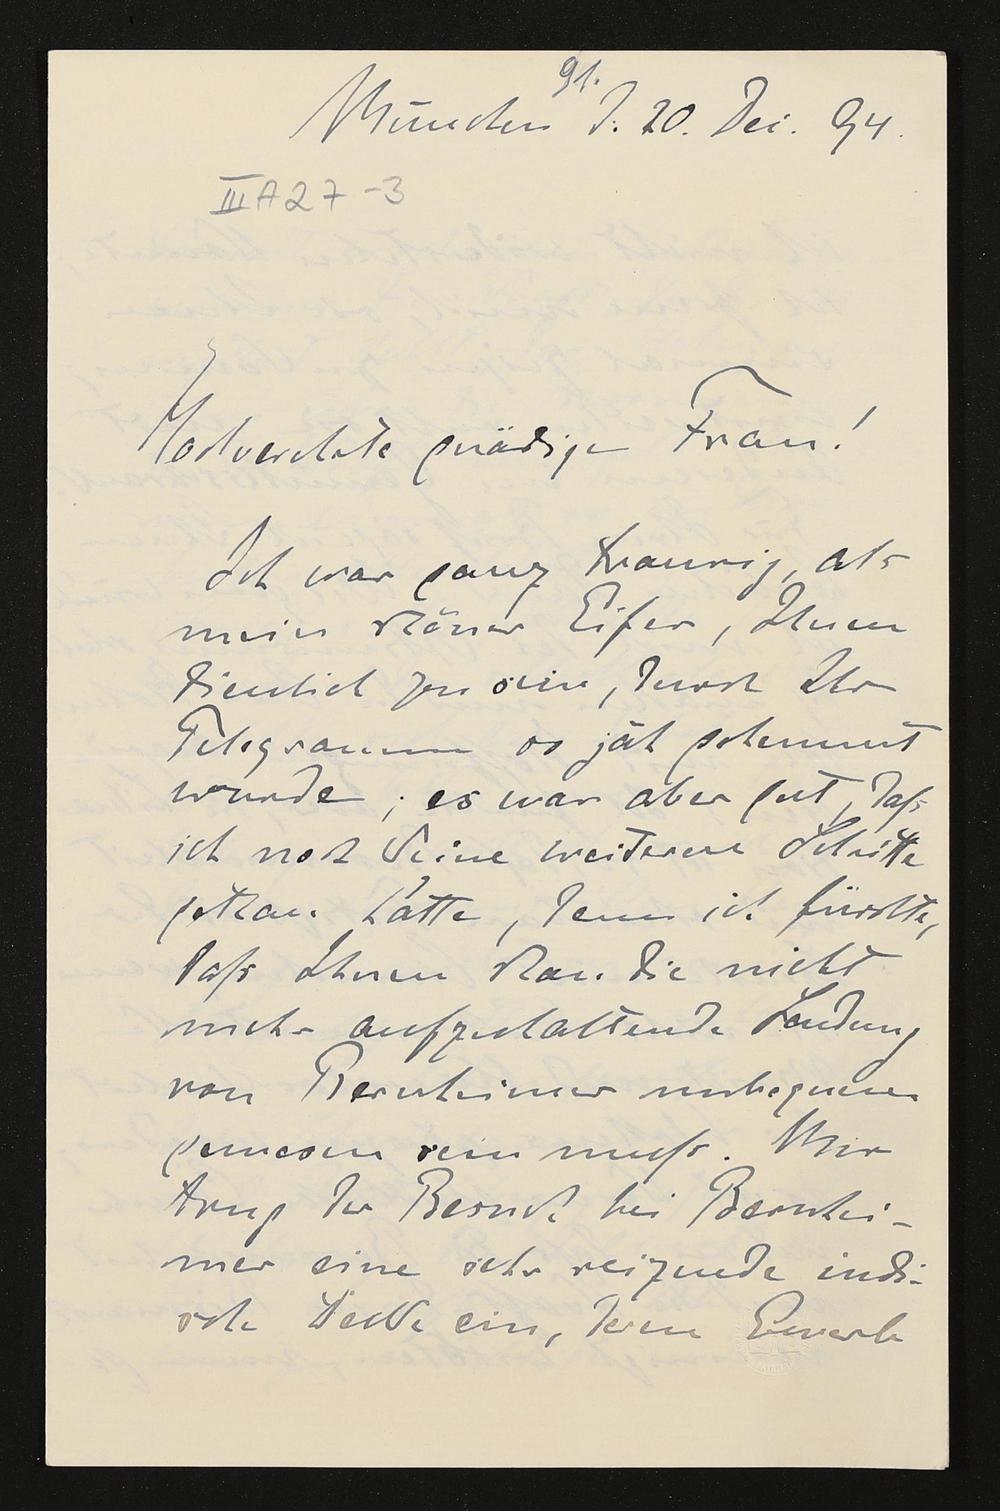 91.
München d. 20. Dec. 94.
III A 27 -3
Hochverehrte gnädige Frau!
Ich war ganz traurig, als
mein schöner Eifer, Ihnen
dienlich zu sein, durch Ihr
Telegramm so jäh gehemmt
wurde; es war aber gut, daß
ich noch keine weiteren Schritte
gethan hatte, denn ich fürchte,
daß Ihnen schon die nicht
mehr aufzuhaltende Sendung
von Bernheimer unbequem
gewesen sein muß. Mir
trug der Besuch bei Bernhei-
mer eine sehr reizende indi-
sche Decke ein, deren Erwerb